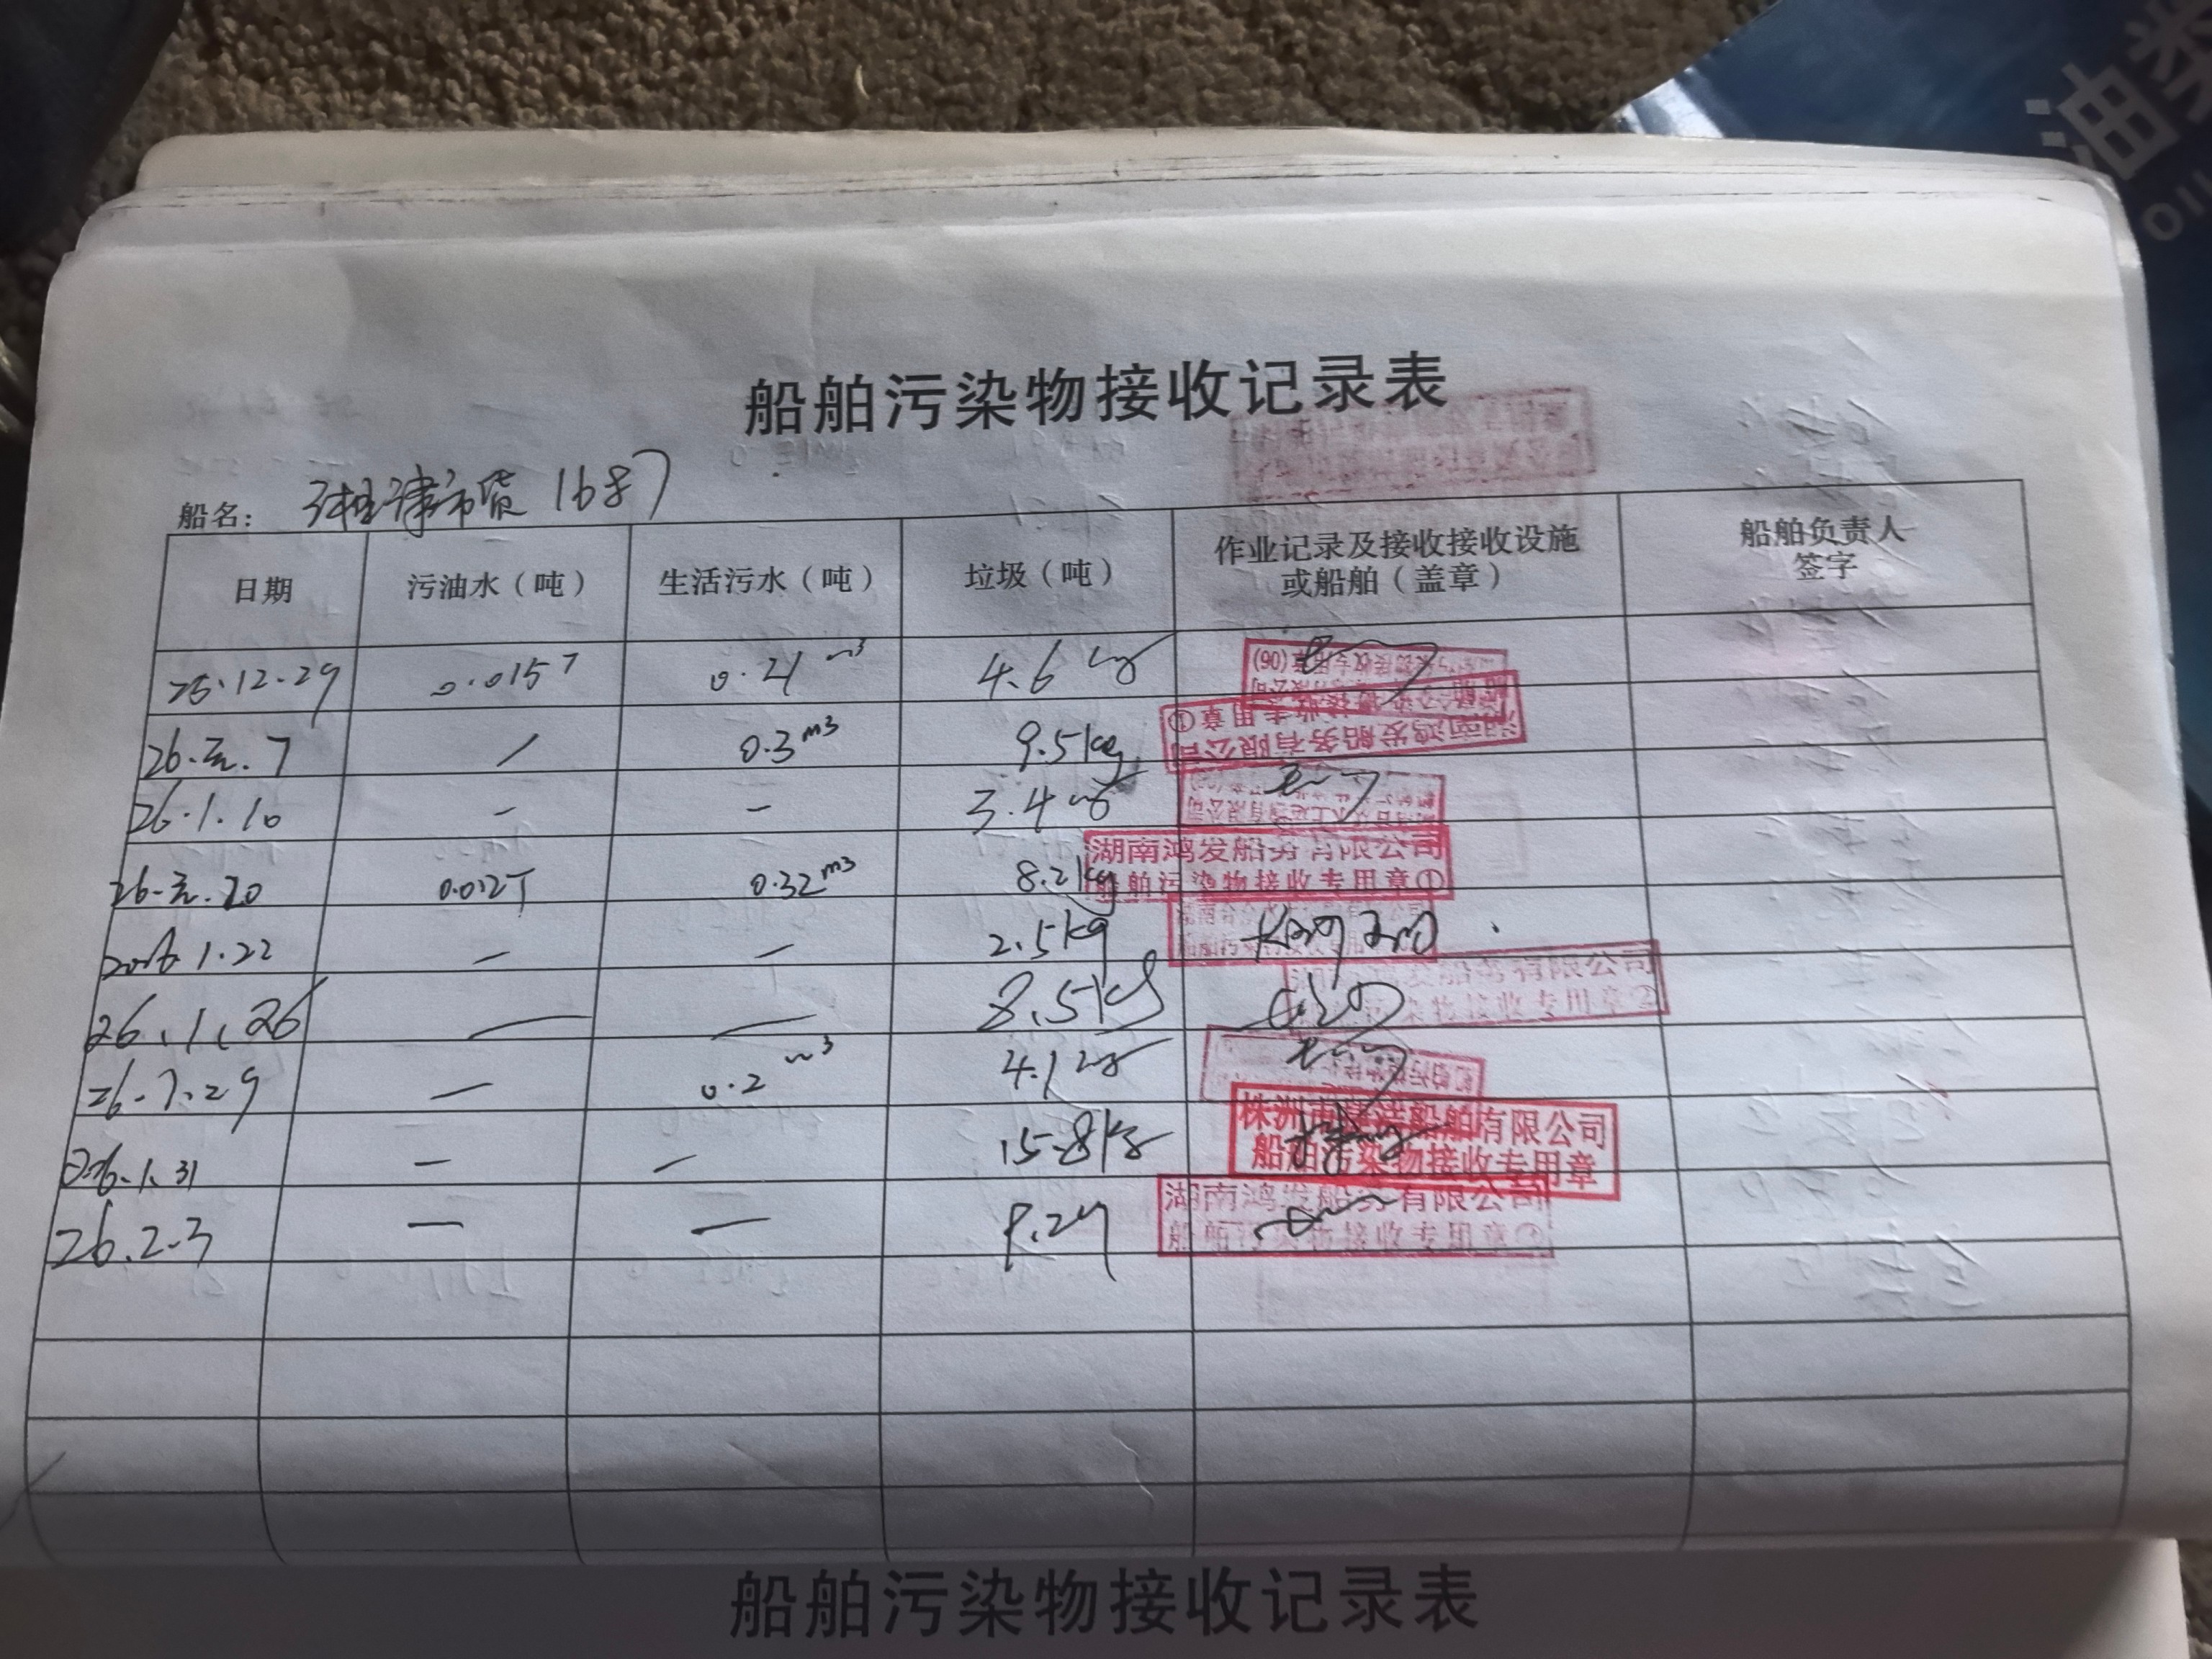 船舶污染物接收记录表
船名： 湘津市货 1687
日期 污油水（吨） 生活污水（吨） 垃圾（吨） 作业记录及接收接收设施或船舶（盖章） 船舶负责人签字
25.12.29 0.015T 0.21 m³ 4.6 kg
26.元.7 / 0.3 m³ 9.5kg 湖南鸿发船务有限公司 船舶污染物接收专用章①
26.1.10 - - 3.4 kg
26.元.20 0.012T 0.32 m³ 8.2kg 湖南鸿发船务有限公司 船舶污染物接收专用章①
2026.1.22 — — 2.5kg
26.1.26 — — 8.5kg 湖南鸿发船务有限公司 船舶污染物接收专用章②
26.1.29 — 0.2 m³ 4.1 kg
026.1.31 — — 15.8kg 株洲市 船舶有限公司 船舶污染物接收专用章
26.2.3 — — 湖南鸿发船务有限公司 船舶污染物接收专用章
船舶污染物接收记录表
油